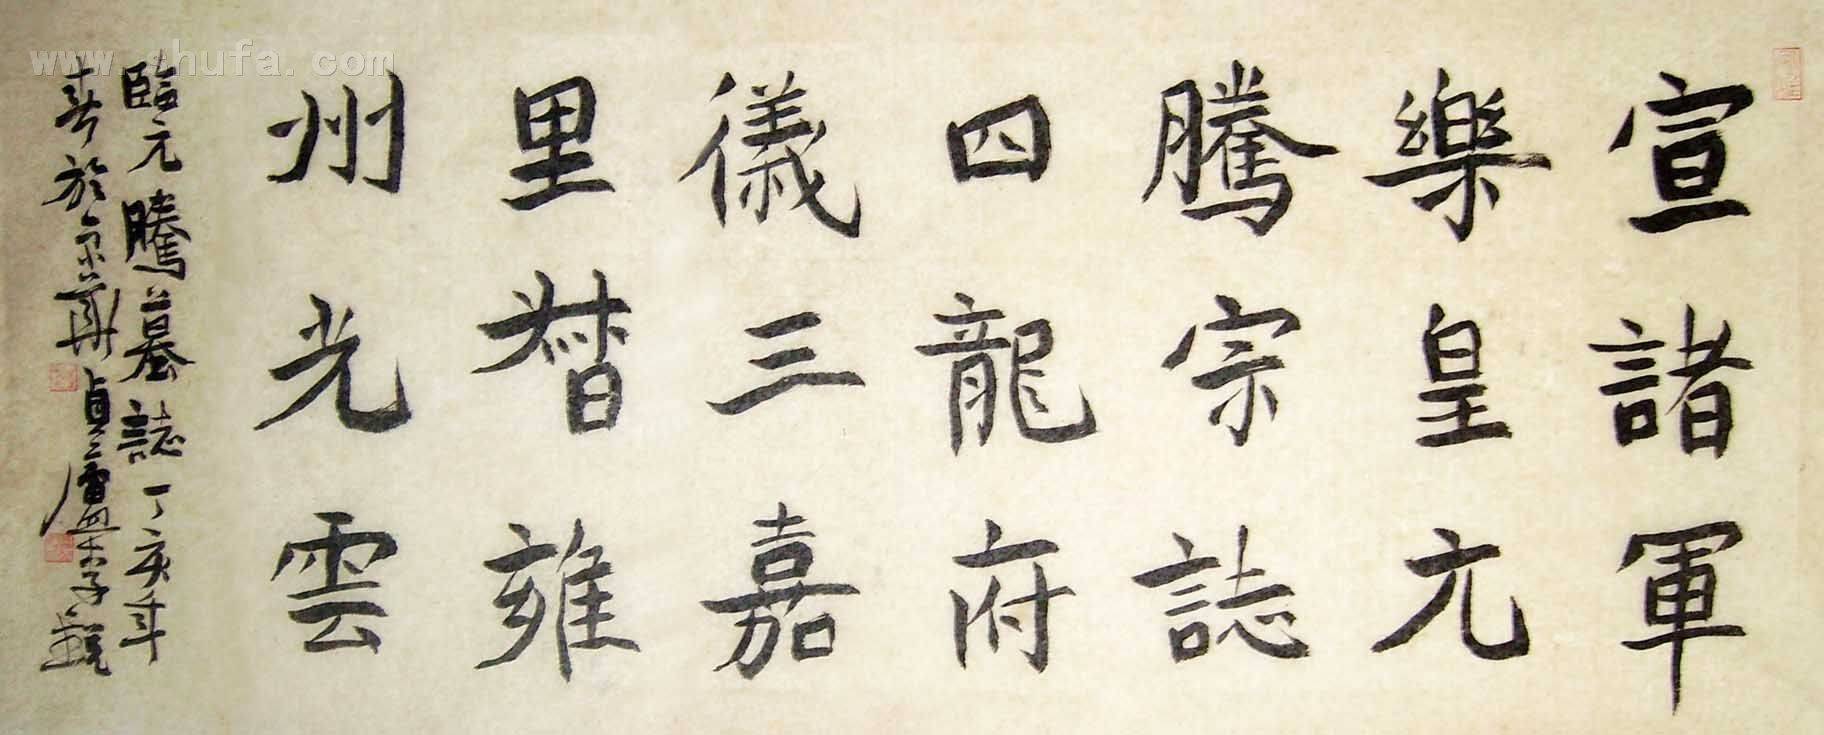 宣諸軍
樂皇元
騰宗誌
四龍府
儀三嘉
里督雍
州光雲
臨元騰墓誌丁亥年
春於京華
www.shufa.com